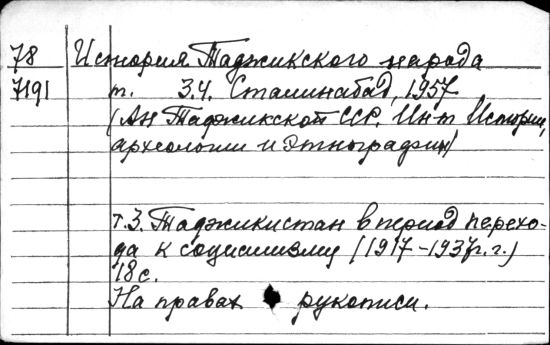 78 История Таджикского народа
7191 т. 3.4. Сталинабад, 1957
(Ан Таджикской ССР. Инт Истории,
археологии и этнографии)
т.3. Таджикистан в период перехо-
да к социализму (1917-1937г.г.)
18с.
На правах рукописи.